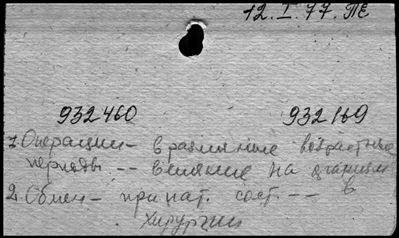 12.I.77. ПЕ
932460 932169
1. Операции - в различные возрастные
периоды -- влияние на организм
2. Обмен - при пат. сост. -- в
хирургии